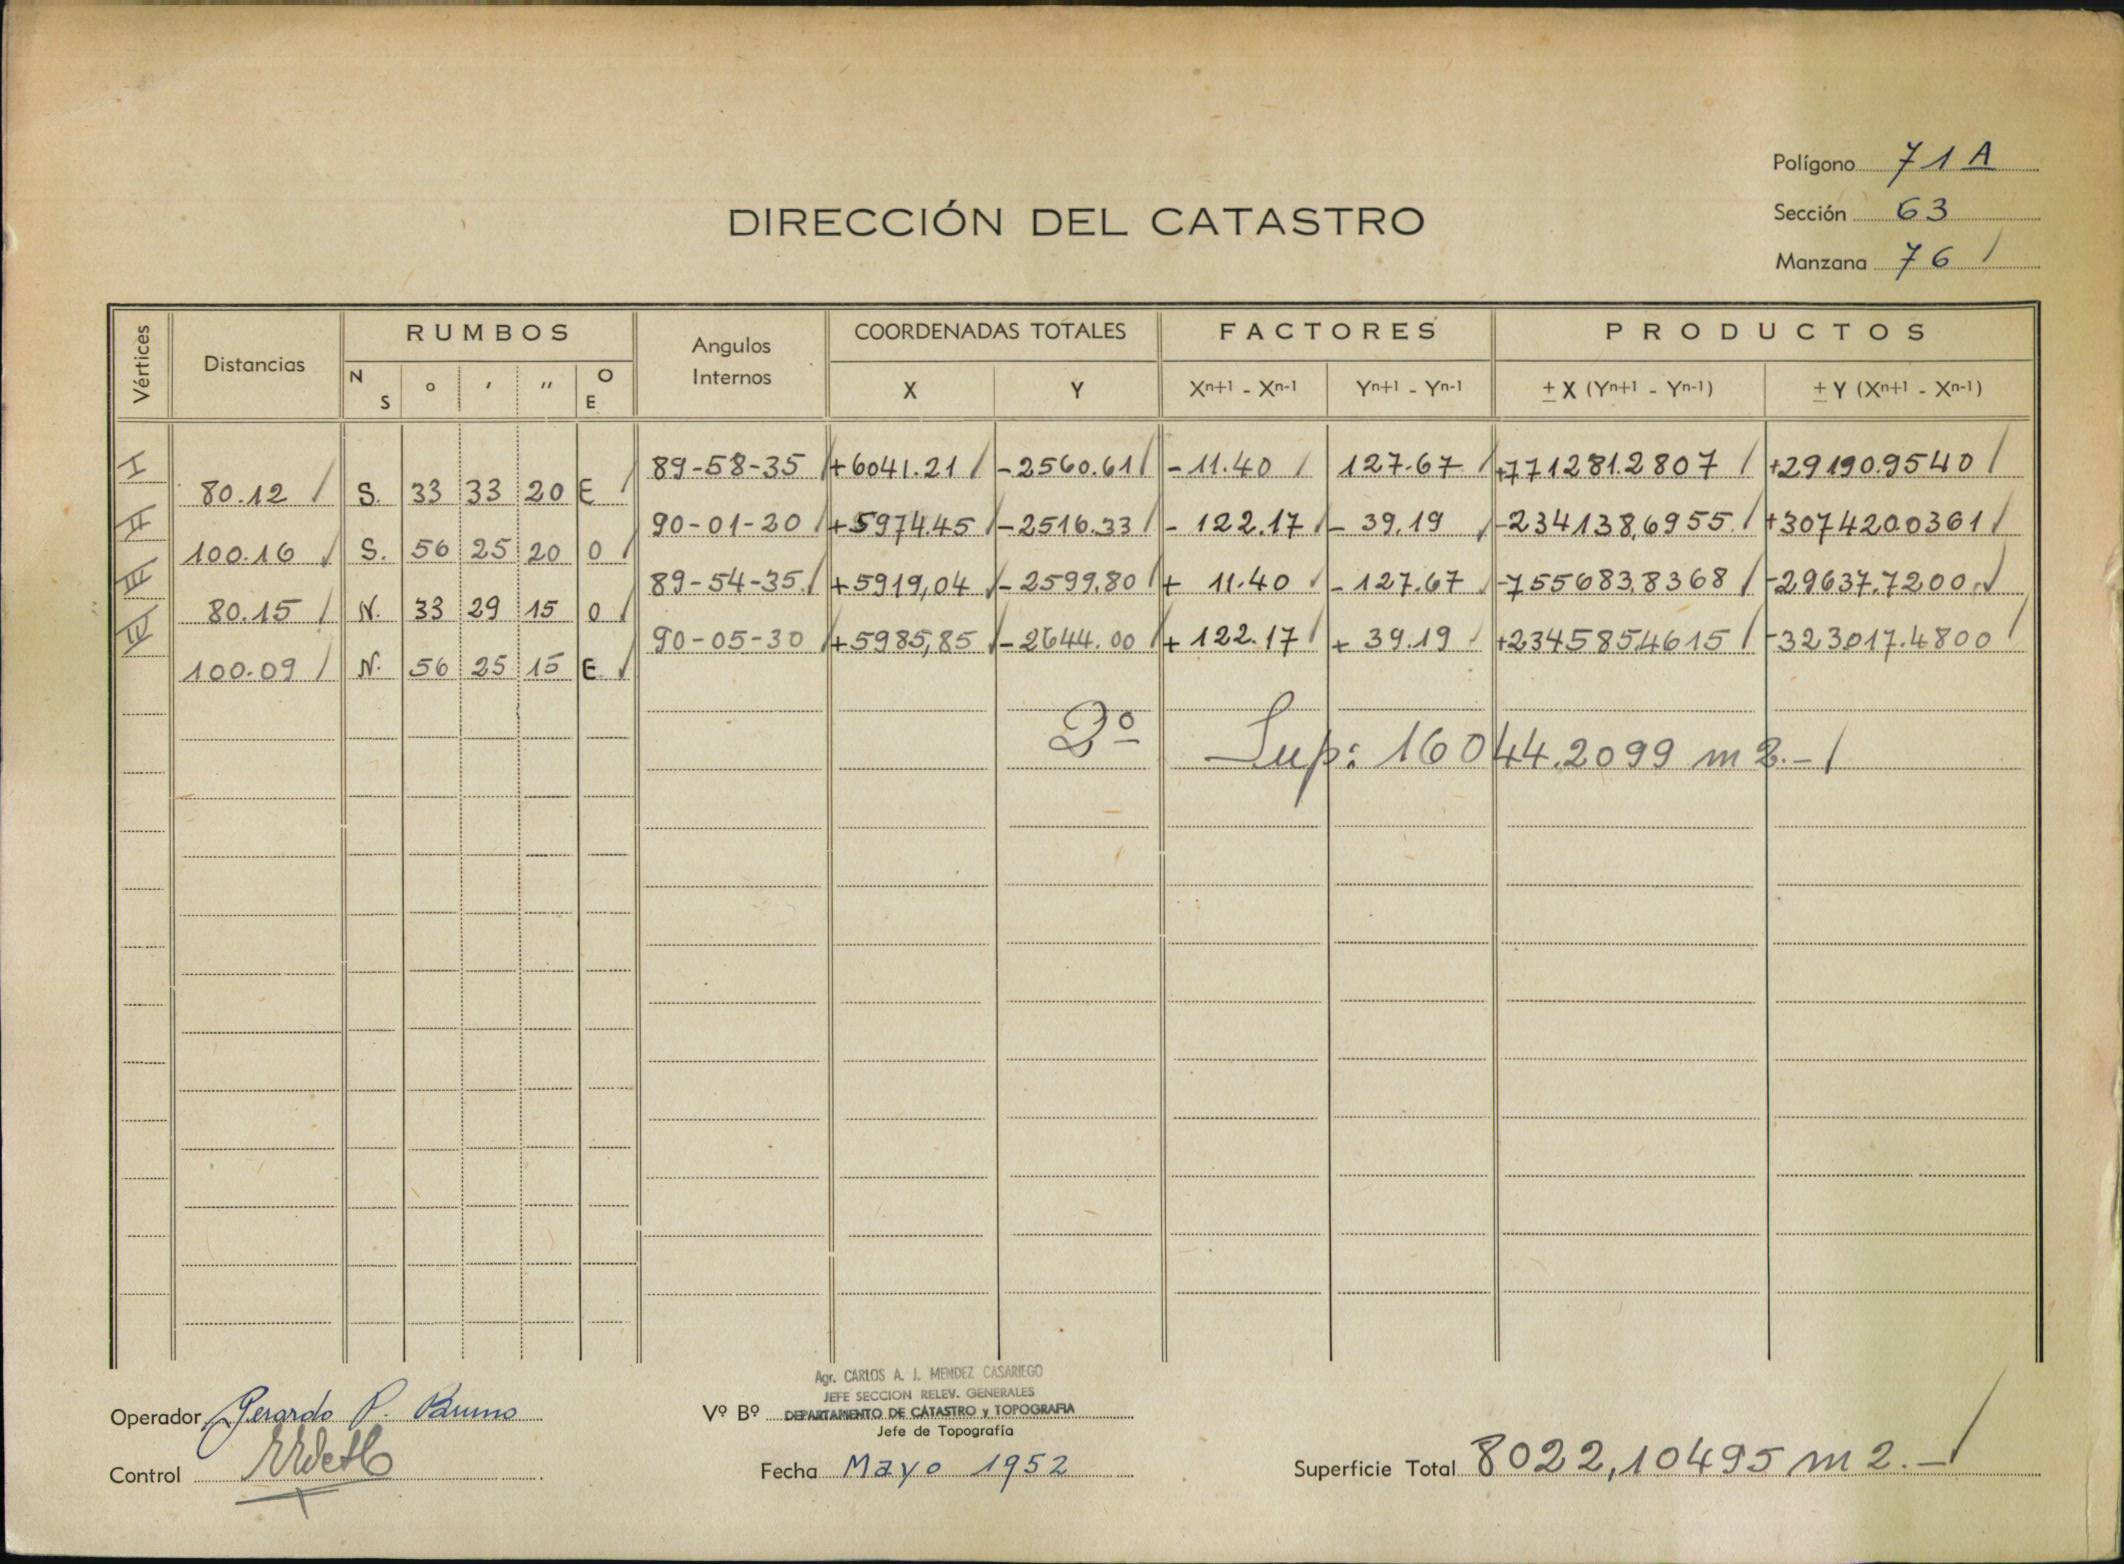 Polígono 71 A
Sección 63
Manzana 76 /
DIRECCIÓN DEL CATASTRO
Vértices Distancias RUMBOS Angulos Internos COORDENADAS TOTALES FACTORES PRODUCTOS
N S o ' '' O E X Y Xn+1 - Xn-1 Yn+1 - Yn-1 ± X (Yn+1 - Yn-1) ± Y (Xn+1 - Xn-1)
I 89-58-35 / +6041.21 / -2560.61 / -11.40 / 127.67 / +771281.2807 / +29190.9540 /
80.12 / S. 33 33 20 E /
II 90-01-20 / +5974.45 / -2516.33 / - 122.17 / - 39.19 / -234138,6955. / +307420.0361 /
100.16 / S. 56 25 20 O /
III 89-54-35. / +5919,04 / -2599.80 / + 11.40 / -127.67 / -755683.8368 / -29637.7200. /
80.15 / N. 33 29 15 O /
IV 90-05-30 / +5985,85 / -2644.00 / + 122.17 / + 39.19 / +234585.4615 / -323017.4800 /
100.09 / N. 56 25 15 E. /
2º Sup: 16044.2099 m2.- /
Agr. CARLOS A. J. MENDEZ CASARIEGO
JEFE SECCION RELEV. GENERALES
Operador Gerardo P. Bruno Vº Bº DEPARTAMENTO DE CATASTRO y TOPOGRAFIA
Jefe de Topografía
Control Fecha Mayo 1952 Superficie Total 8022,10495 m2.- /